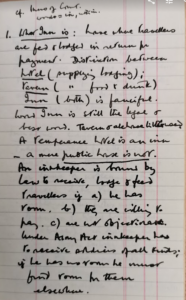 cf. Inns of Court.
1. What Inn is: house where travellers
are fed & lodged in return for
payment. Distinction between
hotel (supplying lodging);
Tavern ( " food & drink)
Inn (both) is fanciful.
word Inn is still the legal &
best word. Tavern &
A Temperance hotel is an inn
— a mere public house is not.
An innkeeper is bound by
law to receive, lodge & feed
Travellers if a) he has
room. b) they are willing to
pay. c) are not objectionable.
Under Army Act innkeeper has
to receive soldiers
if he has no room he must
find room for them
elsewhere.